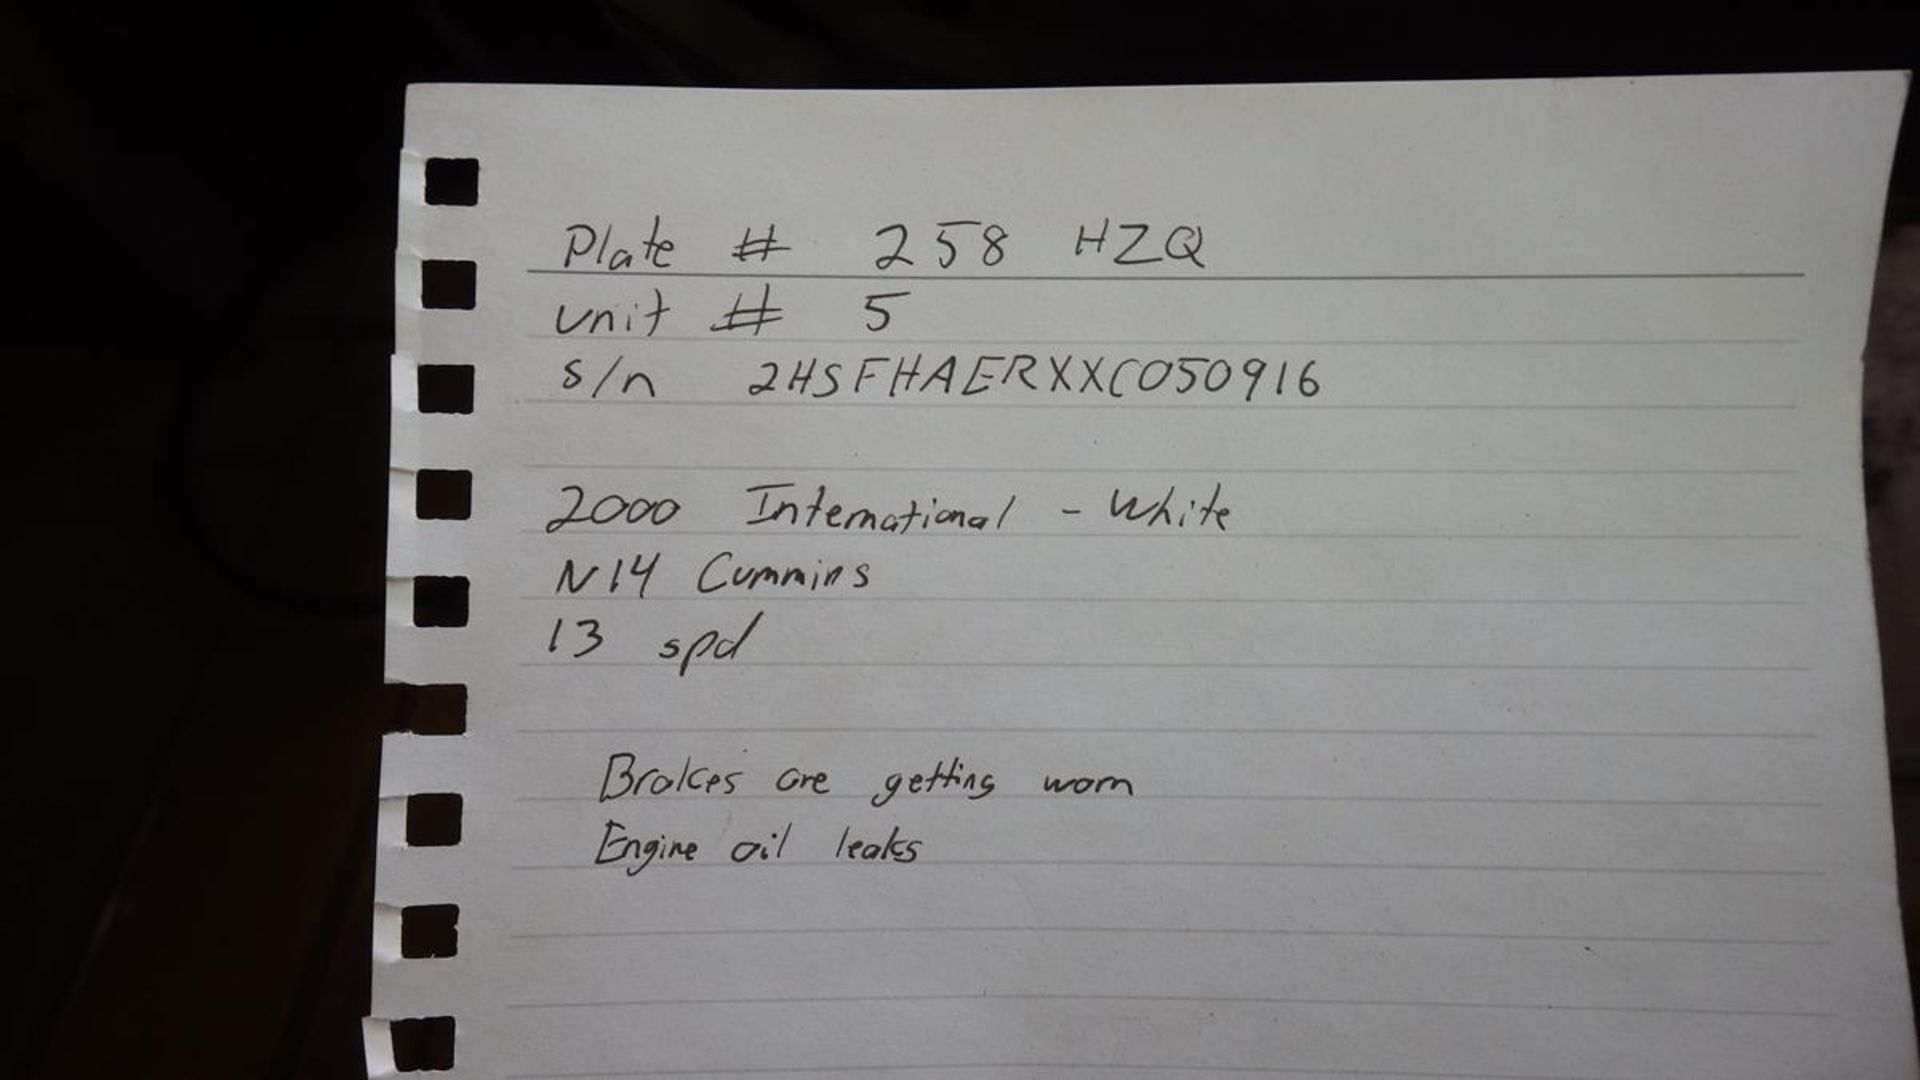 Plate # 258 HZQ
Unit # 5
S/n 2HSFHAERXXC050916
2000 International - White
N14 Cummins
13 spd
Brakes are getting worn
Engine oil leaks